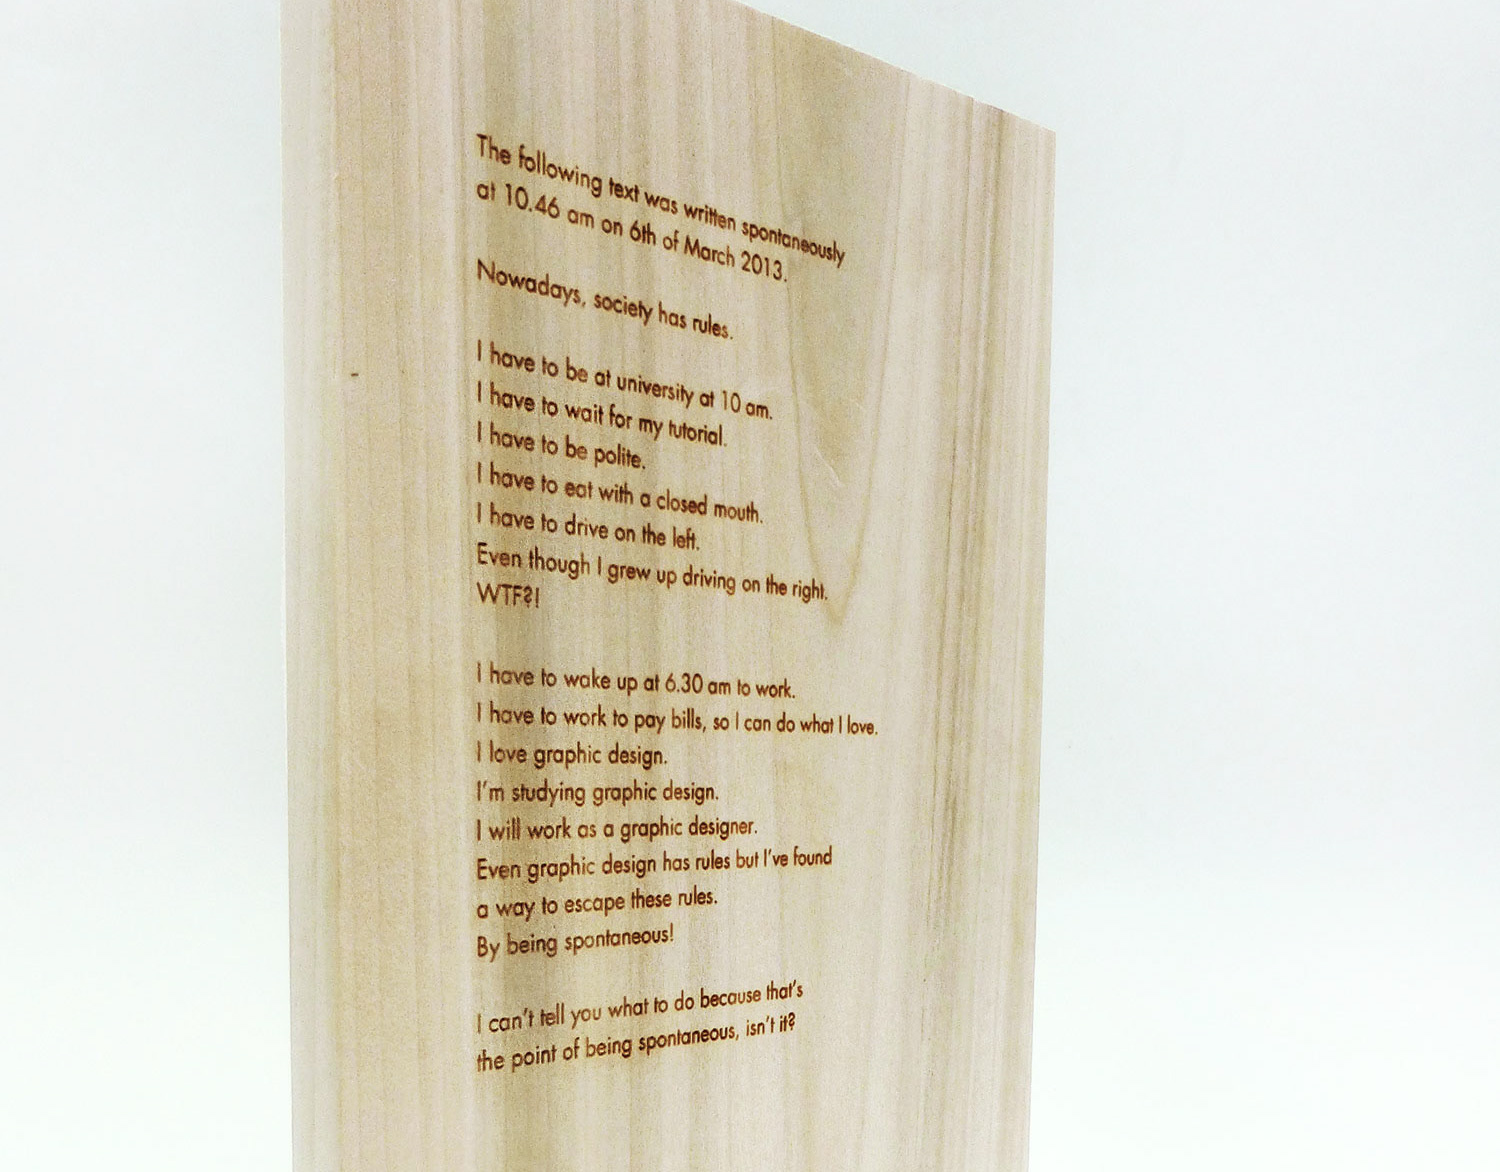 The following text was written spontaneously
at 10.46 am on 6th of March 2013.
Nowadays, society has rules.
I have to be at university at 10 am.
I have to wait for my tutorial.
I have to be polite.
I have to eat with a closed mouth.
I have to drive on the left.
Even though I grew up driving on the right.
WTF?!
I have to wake up at 6.30 am to work.
I have to work to pay bills, so I can do what I love.
I love graphic design.
I'm studying graphic design.
I will work as a graphic designer.
Even graphic design has rules but I've found
a way to escape these rules.
By being spontaneous!
I can't tell you what to do because that's
the point of being spontaneous, isn't it?